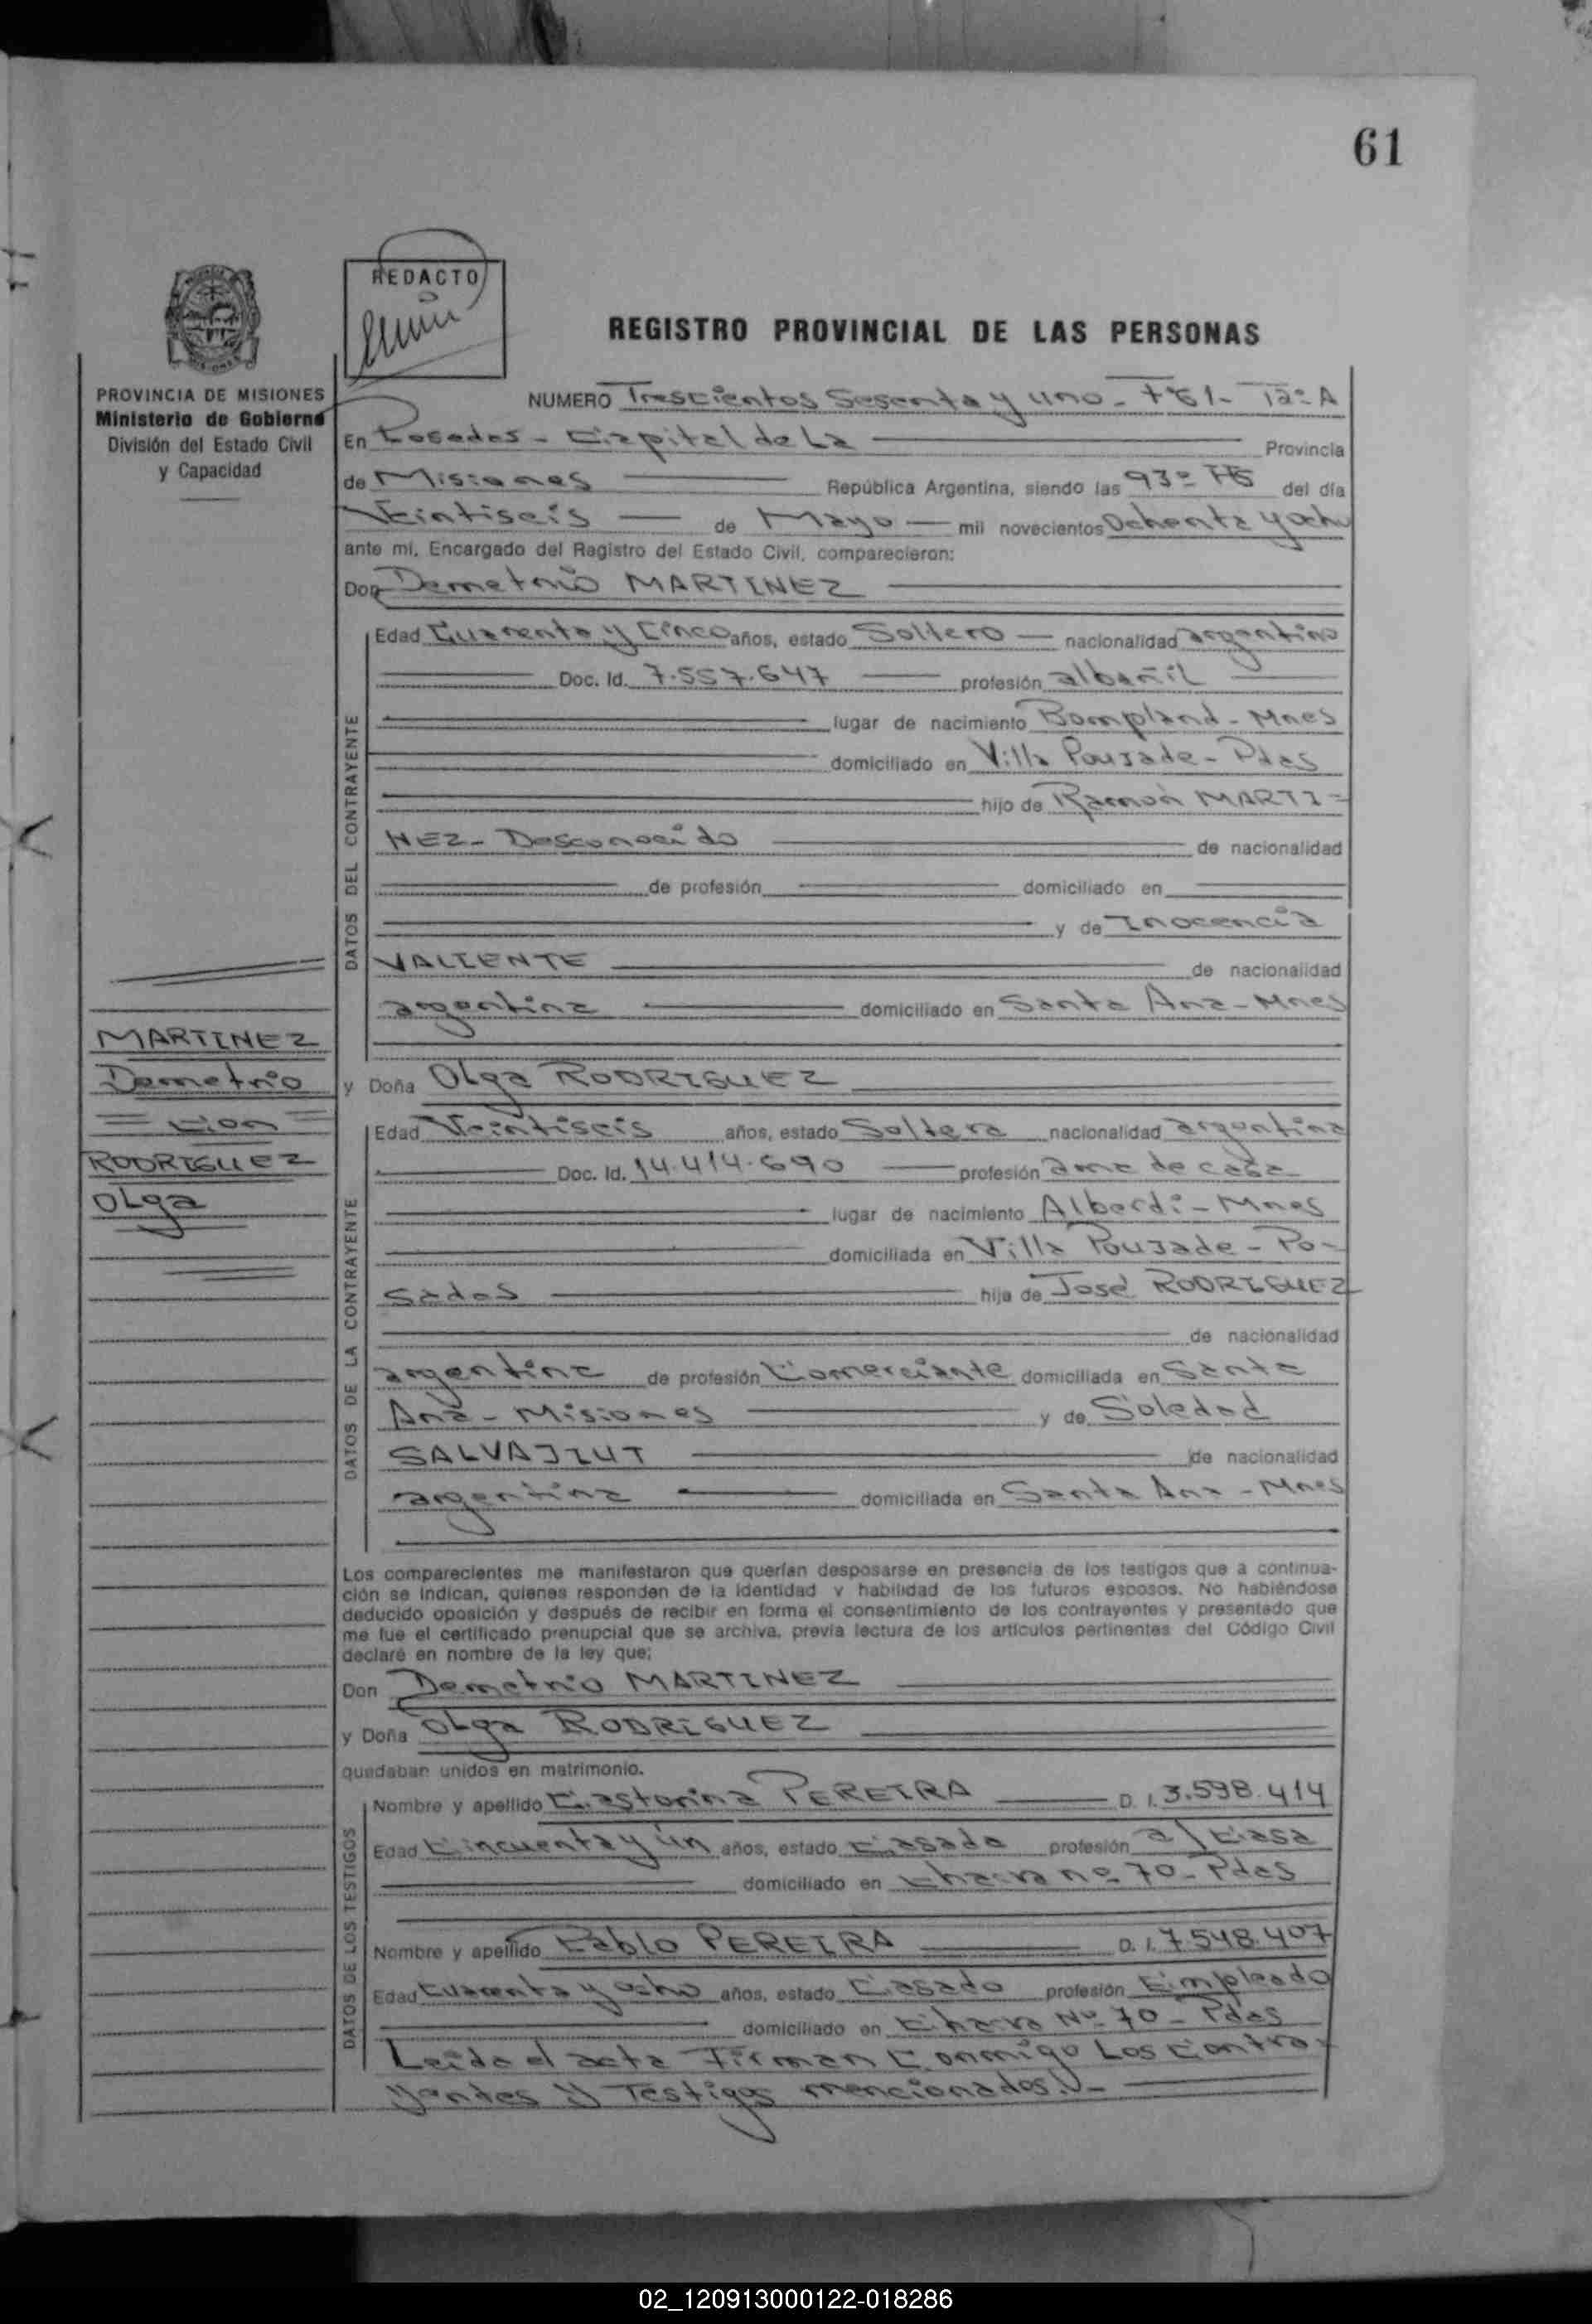 61
REDACTO
REGISTRO PROVINCIAL DE LAS PERSONAS
PROVINCIA DE MISIONES
Ministerio de Gobierno
División del Estado Civil
y Capacidad
NUMERO Trescientos Sesenta y uno
En Posadas - Capital de La Provincia
de Misiones República Argentina, siendo las del día
Veintiseis de Mayo mil novecientos Ochenta y ocho
ante mi, Encargado del Registro del Estado Civil, comparecieron:
Don Demetrio MARTINEZ
DATOS DEL CONTRAYENTE
Edad Cuarenta y Cinco años, estado Soltero nacionalidad argentino
Doc. Id. 7.557.647 profesión albañil
lugar de nacimiento Bompland - Mnes
domiciliado en Villa Poujade - Pdas
hijo de Ramón MARTI=
NEZ - Desconocido de nacionalidad
de profesión domiciliado en
y de Inocencia
VALIENTE de nacionalidad
argentina domiciliado en Santa Ana - Mnes
MARTINEZ
Demetrio
= con =
RODRIGUEZ
Olga
y Doña Olga RODRIGUEZ
DATOS DE LA CONTRAYENTE
Edad Veintiseis años, estado Soltera nacionalidad argentina
Doc. Id. 14.414.690 profesión ama de casa
lugar de nacimiento Alberdi - Mnes
domiciliada en Villa Poujade - Po-
sadas hija de José RODRIGUEZ
de nacionalidad
argentina de profesión Comerciante domiciliada en Santa
Ana - Misiones y de Soledad
SALVAJIUT de nacionalidad
argentina domiciliada en Santa Ana - Mnes
Los comparecientes me manifestaron que querían desposarse en presencia de los testigos que a continua-
ción se indican, quienes responden de la identidad y habilidad de los futuros esposos. No habiéndose
deducido oposición y después de recibir en forma el consentimiento de los contrayentes y presentado que
me fue el certificado prenupcial que se archiva, previa lectura de los artículos pertinentes del Código Civil
declaré en nombre de la ley que;
Don Demetrio MARTINEZ
y Doña Olga RODRIGUEZ
quedaban unidos en matrimonio.
DATOS DE LOS TESTIGOS
Nombre y apellido Castorina PEREIRA D. I. 3.598.414
Edad Cincuenta y un años, estado Casada profesión a/ Casa
domiciliado en Chacra nº 70 - Pdas
Nombre y apellido Pablo PEREIRA D. I. 7.548.407
Edad Cuarenta y ocho años, estado Casado profesión Empleado
domiciliado en Chacra Nº 70 - Pdas
Leida el acta Firman Conmigo Los Contra-
yentes y Testigos mencionados. -
02_120913000122-018286